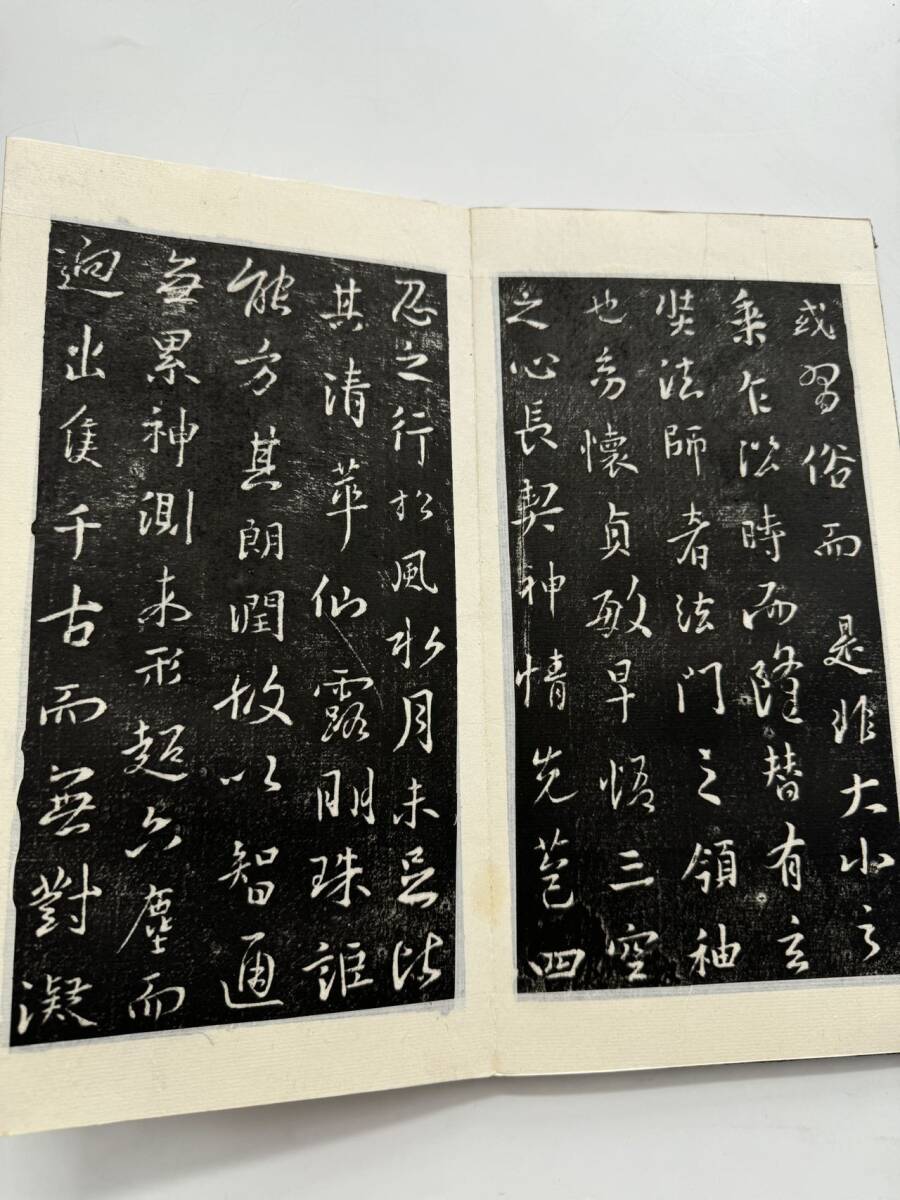 或習俗而是非大小之
乘乍沿時而隆替有玄
奘法師者法門之領袖
也幼懷貞敏早悟三空
之心長契神情先苞四
忍之行松風水月未足比
其清華仙露明珠詎
能方其朗潤故以智通
無累神測未形超六塵而
迥出隻千古而無對凝